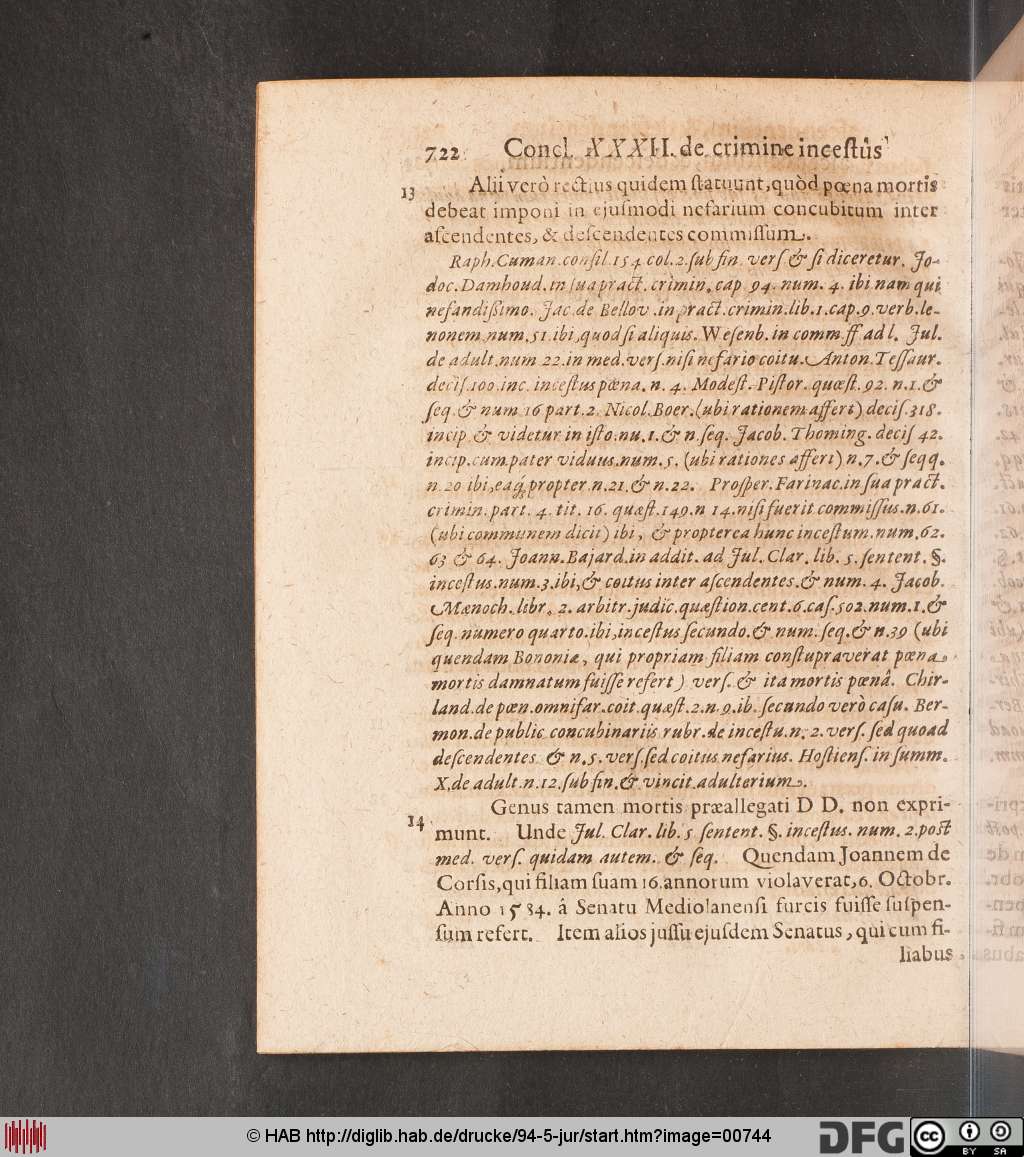 722 Concl. XXXII. de crimine incestûs
13 Alii verò rectius quidem statuunt, quòd pœna mortis
debeat imponi in ejusmodi nefarium concubitum inter
ascendentes, & descendentes commissum.
Raph. Cuman. consil. 154. col. 2. sub fin. vers & si diceretur. Jo-
doc. Damhoud. in sua pract. crimin. cap. 94. num. 4. ibi nam qui
nefandissimo. Jac. de Bellov. in pract. crimin. lib. 1. cap. 9. verb. le-
nonem, num. 51. ibi, quod si aliquis. Wesenb. in comm. ff ad l. Jul.
de adult. num 22. in med. vers. nisi nefario coitu. Anton. Tessaur.
decis. 100. inc. incestus pœna. n. 4. Modest. Pistor. quæst. 92. n. 1. &
seq. & num 16 part. 2. Nicol. Boer. (ubi rationem affert) decis. 318.
incip & videtur in isto. nu. 1. & n. seq. Jacob. Thoming. decis 42.
incip. cum pater viduus. num. 5. (ubi rationes affert) n. 7. & seqq.
n. 20 ibi, eaq́; propter. n. 21. & n. 22. Prosper. Farinac. in sua pract.
crimin. part. 4. tit. 16. quæst. 149. n 14. nisi fuerit commissus. n. 61.
(ubi communem dicit) ibi, & propterea hunc incestum. num, 62.
63 & 64. Joann. Bajard. in addit. ad Jul. Clar. lib. 5. sentent. §.
incestus. num. 3. ibi, & coitus inter ascendentes. & num. 4. Jacob.
Mænoch. libr. 2. arbitr. judic. quæstion. cent. 6. cas. 502. num. 1. &
seq. numero quarto. ibi, incestus secundo. & num. seq. & n. 39 (ubi
quendam Bononiæ, qui propriam filiam constupraverat pœna
mortis damnatum fuisse refert) vers. & ita mortis pœnâ. Chir-
land. de pœn. omnifar. coit. quæst. 2. n. 9. ib. secundo verò casu. Ber-
mon. de public. concubinariis rubr. de incestu. n. 2. vers. sed quoad
descendentes & n. 5. vers. sed coitus nefarius. Hostiens. in summ.
X. de adult. n. 12. sub fin. & vincit adulterium.
Genus tamen mortis præallegati D D. non expri-
14 munt. Unde Jul. Clar. lib. 5 sentent. §. incestus. num. 2. post
med. vers. quidam autem. & seq. Quendam Joannem de
Corsis, qui filiam suam 16. annorum violaverat, 6. Octobr.
Anno 1584. â Senatu Mediolanensi furcis fuisse suspen-
sum refert. Item alios jussu ejusdem Senatus, qui cum fi-
liabus
© HAB http://diglib.hab.de/drucke/94-5-jur/start.htm?image=00744
DFG
cc BY SA